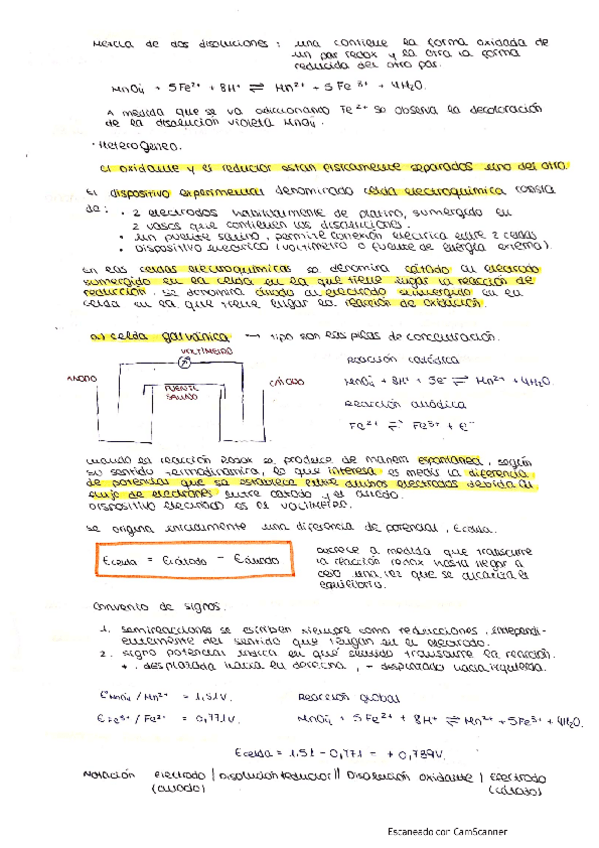 Mezcla de dos disoluciones : una contiene la forma oxidada de
un par redox y la otra la forma
reducida del otro par.
MnO4⁻ + 5Fe²⁺ + 8H⁺ ⇌ Mn²⁺ + 5Fe³⁺ + 4H2O.
A medida que se va adicionando Fe²⁺ se observa la decoloración
de la disolución violeta MnO4⁻.
· Heterogéneo.
El oxidante y el reductor están físicamente separados uno del otro.
El dispositivo experimental denominado celda electroquímica consta
de : · 2 electrodos habitualmente de platino, sumergido en
2 vasos que contienen las disoluciones.
· un puente salino, permite conexión eléctrica entre 2 celdas
· Dispositivo eléctrico (voltímetro o fuente de energía externa).
En las celdas electroquímicas se denomina cátodo al electrodo
sumergido en la celda en la que tiene lugar la reacción de
reducción. Se denomina ánodo al electrodo sumergido en la
celda en la que tiene lugar la reacción de oxidación.
a) celda galvánica → tipo son las pilas de concentración.
VOLTÍMETRO
ÁNODO
PUENTE
SALINO
CÁTODO
Reacción catódica
MnO4⁻ + 8H⁺ + 5e⁻ ⇌ Mn²⁺ + 4H2O
Reacción anódica
Fe²⁺ ⇌ Fe³⁺ + e⁻
cuando la reacción redox se produce de manera espontánea, según
su sentido termodinámica, lo que interesa es medir la diferencia
de potencial que se establece entre ambos electrodos debida al
flujo de electrones entre cátodo y el ánodo.
Dispositivo eléctrico es el voltímetro.
Se origina inicialmente una diferencia de potencial, Ecelda.
Ecelda = Ecátodo - Eánodo
decrece a medida que transcurre
la reacción redox hasta llegar a
cero una vez que se alcanza el
equilibrio.
Convenio de signos.
1. semireacciones se escriben siempre como reducciones, independi-
entemente del sentido que tengan en el electrodo.
2. signo potencial indica en qué sentido transcurre la reacción.
+, desplazada hacia la derecha, - desplazado hacia izquierda.
E MnO4⁻ / Mn²⁺ = 1,51V.
E Fe³⁺ / Fe²⁺ = 0,771V.
Reacción global
MnO4⁻ + 5Fe²⁺ + 8H⁺ ⇌ Mn²⁺ + 5Fe³⁺ + 4H2O.
Ecelda = 1.51 - 0,771 = + 0,739V.
Notación electrodo | Disolución reductor || Disolución oxidante | Electrodo
(ánodo) (cátodo)
Escaneado con CamScanner